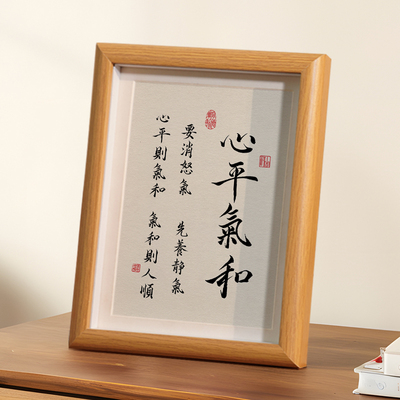 心平氣和
要消怒氣 先養靜氣
心平則氣和 氣和則人順